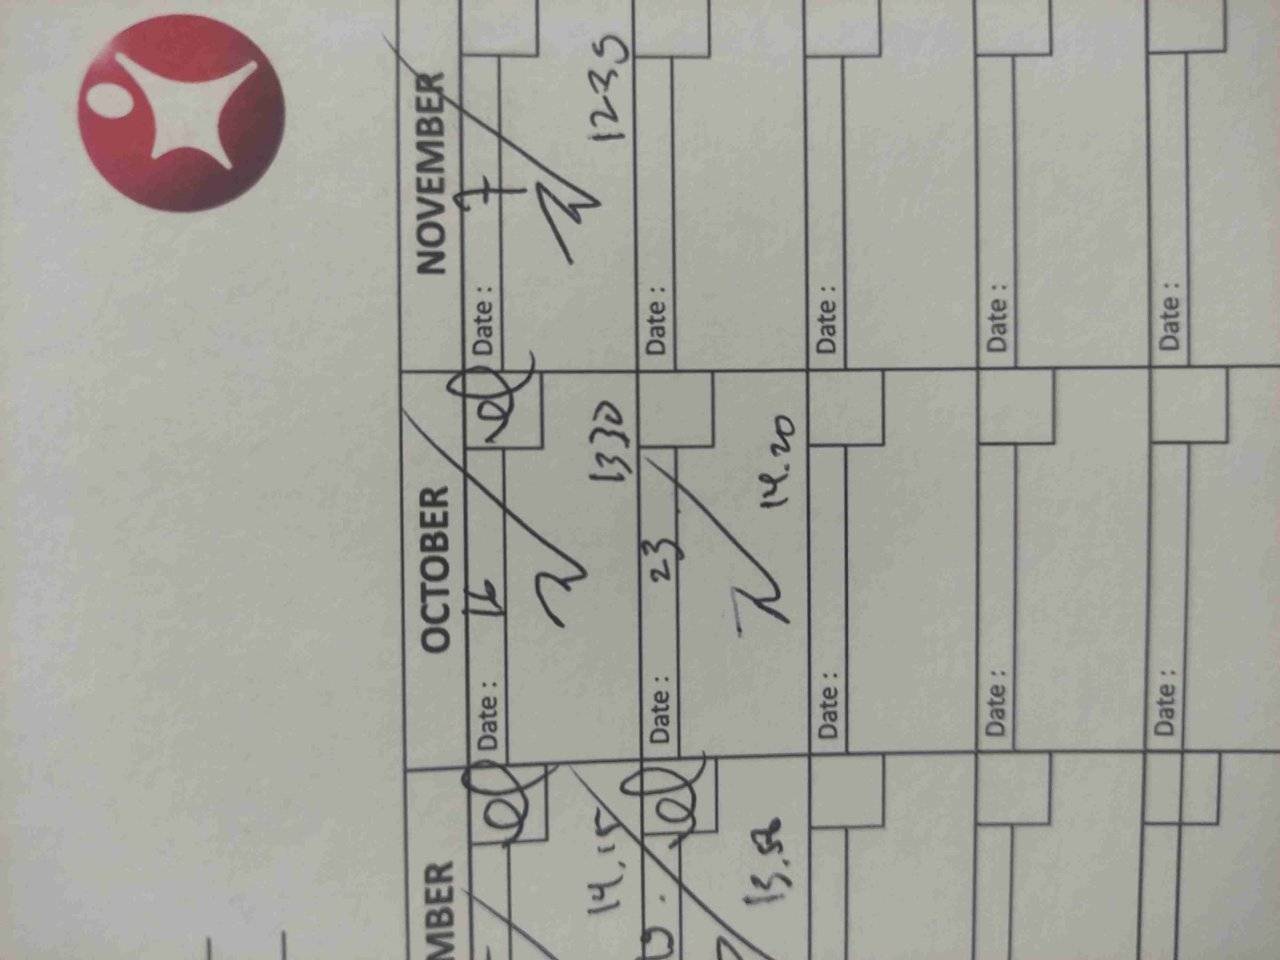 MBER OCTOBER NOVEMBER
Date : 16 Date : 7
14.15 1330 1235
Date : 23 Date :
13.50 14.20
Date : Date :
Date : Date :
Date : Date :